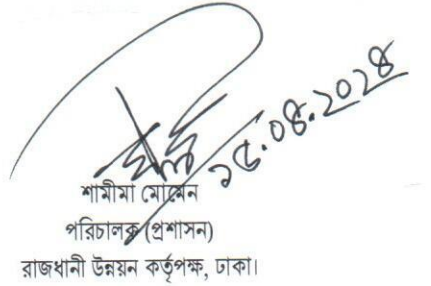 ১৫.০৪.২০২৪
শামীমা মোমেন
পরিচালক (প্রশাসন)
রাজধানী উন্নয়ন কর্তৃপক্ষ, ঢাকা।